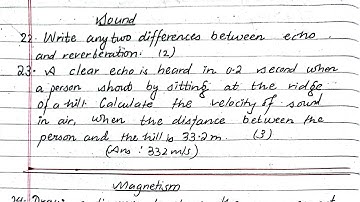 Sound
22. Write any two differences between echo
and reverberation. (2)
23. A clear echo is heard in 0.2 second when
a person shout by sitting at the ridge
of a hill. Calculate the velocity of sound
in air, when the distance between the
person and the hill is 33.2m. (3)
(Ans: 332 m/s)
Magnetism